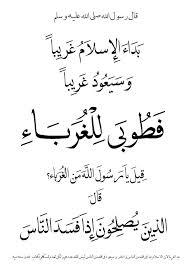 قال رسول الله صلى الله عليه و سلم
بَدَاءَ الإِسْلَامُ غَرِيباً
وَسَيَعُودُ غَرِيباً
فَطُوبَى لِلْغُرَبَاءِ
قِيلَ يَا رَسُولَ اللَّهِ مَنِ الْغُرَبَاءُ؟
قَالَ
الَّذِينَ يُصْلِحُونَ إِذَا فَسَدَ النَّاسُ